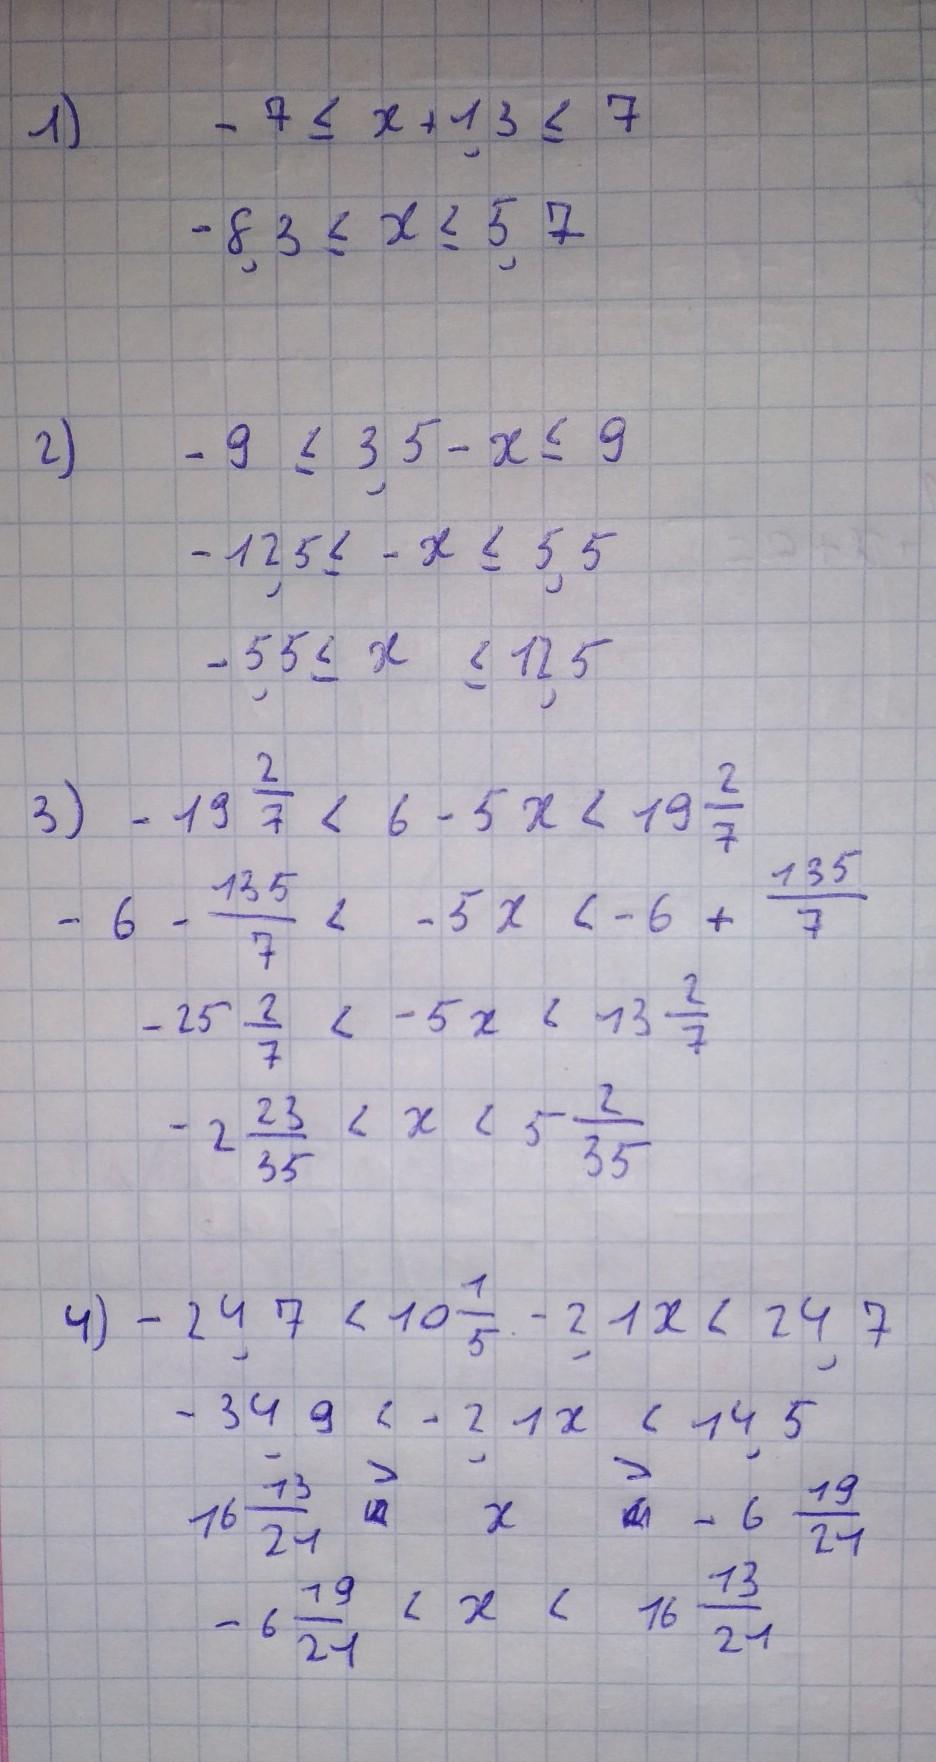 1) -7 ≤ x + 1,3 ≤ 7
-8,3 ≤ x ≤ 5,7
2) -9 ≤ 3,5 - x ≤ 9
-12,5 ≤ -x ≤ 5,5
-5,5 ≤ x ≤ 12,5
3) -19 2/7 < 6 - 5x < 19 2/7
-6 - 135/7 < -5x < -6 + 135/7
-25 2/7 < -5x < 13 2/7
-2 23/35 < x < 5 2/35
4) -24,7 < 10 1/5 - 2,1x < 24,7
-34,9 < -2,1x < 14,5
16 13/21 > x > -6 19/21
-6 19/21 < x < 16 13/21